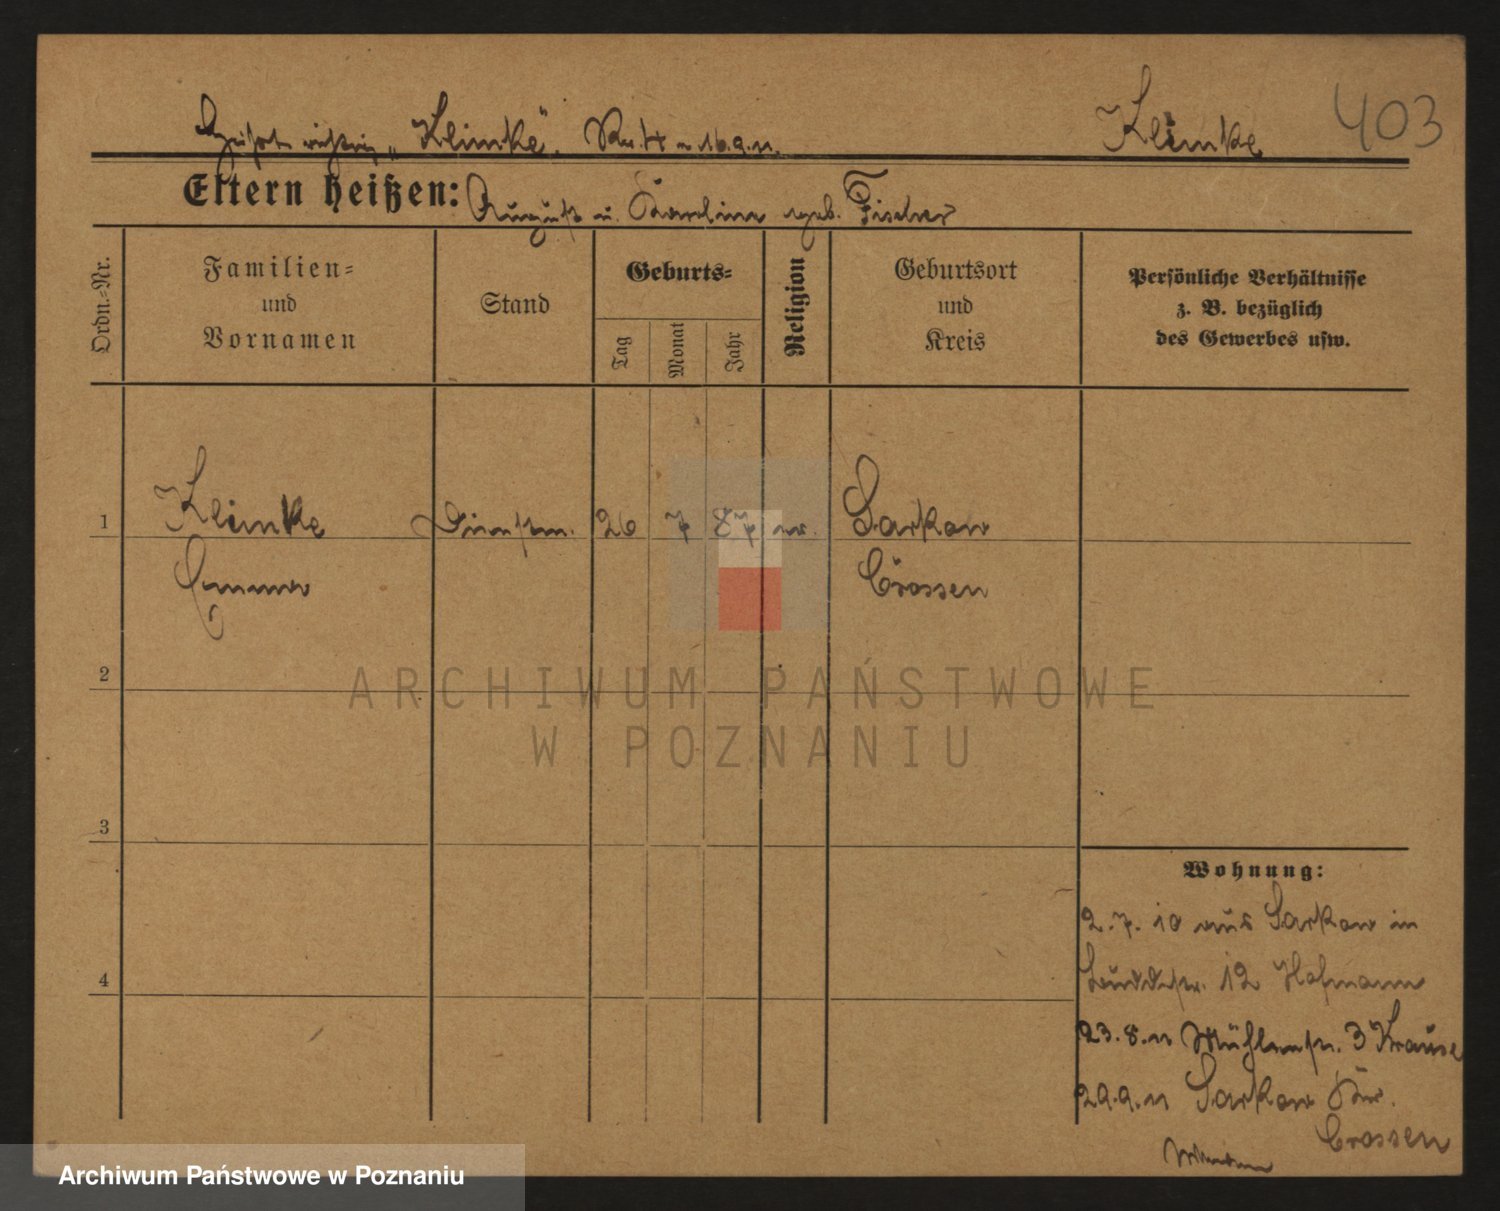 richtig „Klimke".
Klimke
403
Eltern heißen: August u. Karoline geb. Fischer
Ordn.=Nr.
Familien=
und
Vornamen
Stand
Geburts=
Tag
Monat
Jahr
Religion
Geburtsort
und
Kreis
Persönliche Verhältnisse
z. B. bezüglich
des Gewerbes usw.
1 Klimke 26 7 87 ev. Sarkow
Emma Crossen
2
3
4
Wohnung:
2.7.10 aus Sarkow in
12 Hofmann
23.8.11 Mühlenstr. 3 Krause
29.9.11 Sarkow Kr.
Crossen
ARCHIWUM PAŃSTWOWE
W POZNANIU
Archiwum Państwowe w Poznaniu